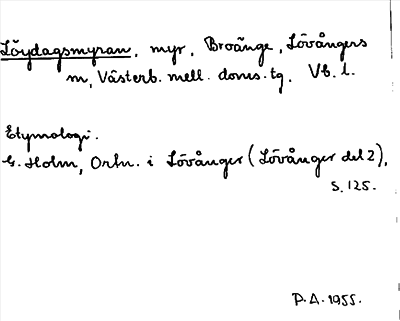 Löydagsmyran, myr, Broänge, Lövångers
m, Västerb. mell. doms. tg. Vb. l.
Etymologi.
G. Holm, Ortn. i Lövånger (Lövånger del 2),
s. 125.
P.A. 1955.